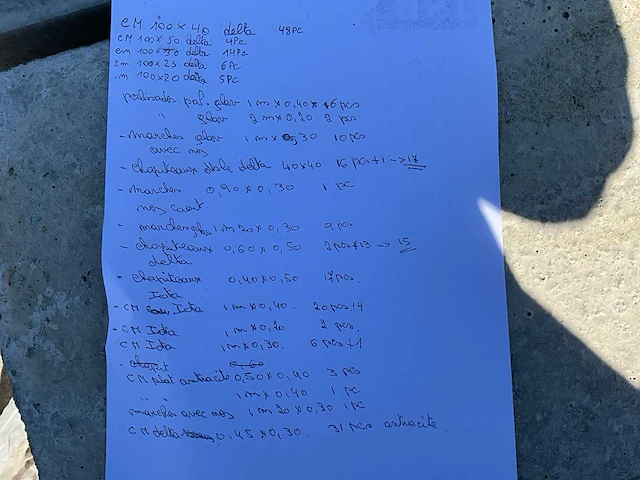 CM 100 x 40 delta 48pc
CM 100 x 50 delta 4Pc
cm 100 x 30 delta 14Pc
cm 100 x 25 delta 6Pc
-m 100x20 delta 5Pc
palissades pol. glav 1m x 0,40 x 6 pcs
" glav 2m x 0,20 2 pcs
- marches glav 1m x 0,30 10 pcs
avec nez
- chapiteaux dale delta 40x40 16 pcs +1 -> 17
- marches 0,90 x 0,30 1 pc
nez
- marches glav 1m20 x 0,30 9 pcs
- chapiteaux 0,60 x 0,50 2 pcs + 13 -> 15
delta
- chapiteaux 0,40 x 0,50 17 pcs
Iota
- CM Iota 1m x 0,40. 20 pcs + 4
- CM Iota 1m x 0,20 2 pcs.
CM Iota 1m x 0,30. 6 pcs + 1
CM plat antracite 0,50 x 0,40 3 pcs
" " 1m x 0,40 1 pc
marches avec nez 1m20 x 0,30 1 pc
CM delta 0,45 x 0,30. 31 pcs antracite.